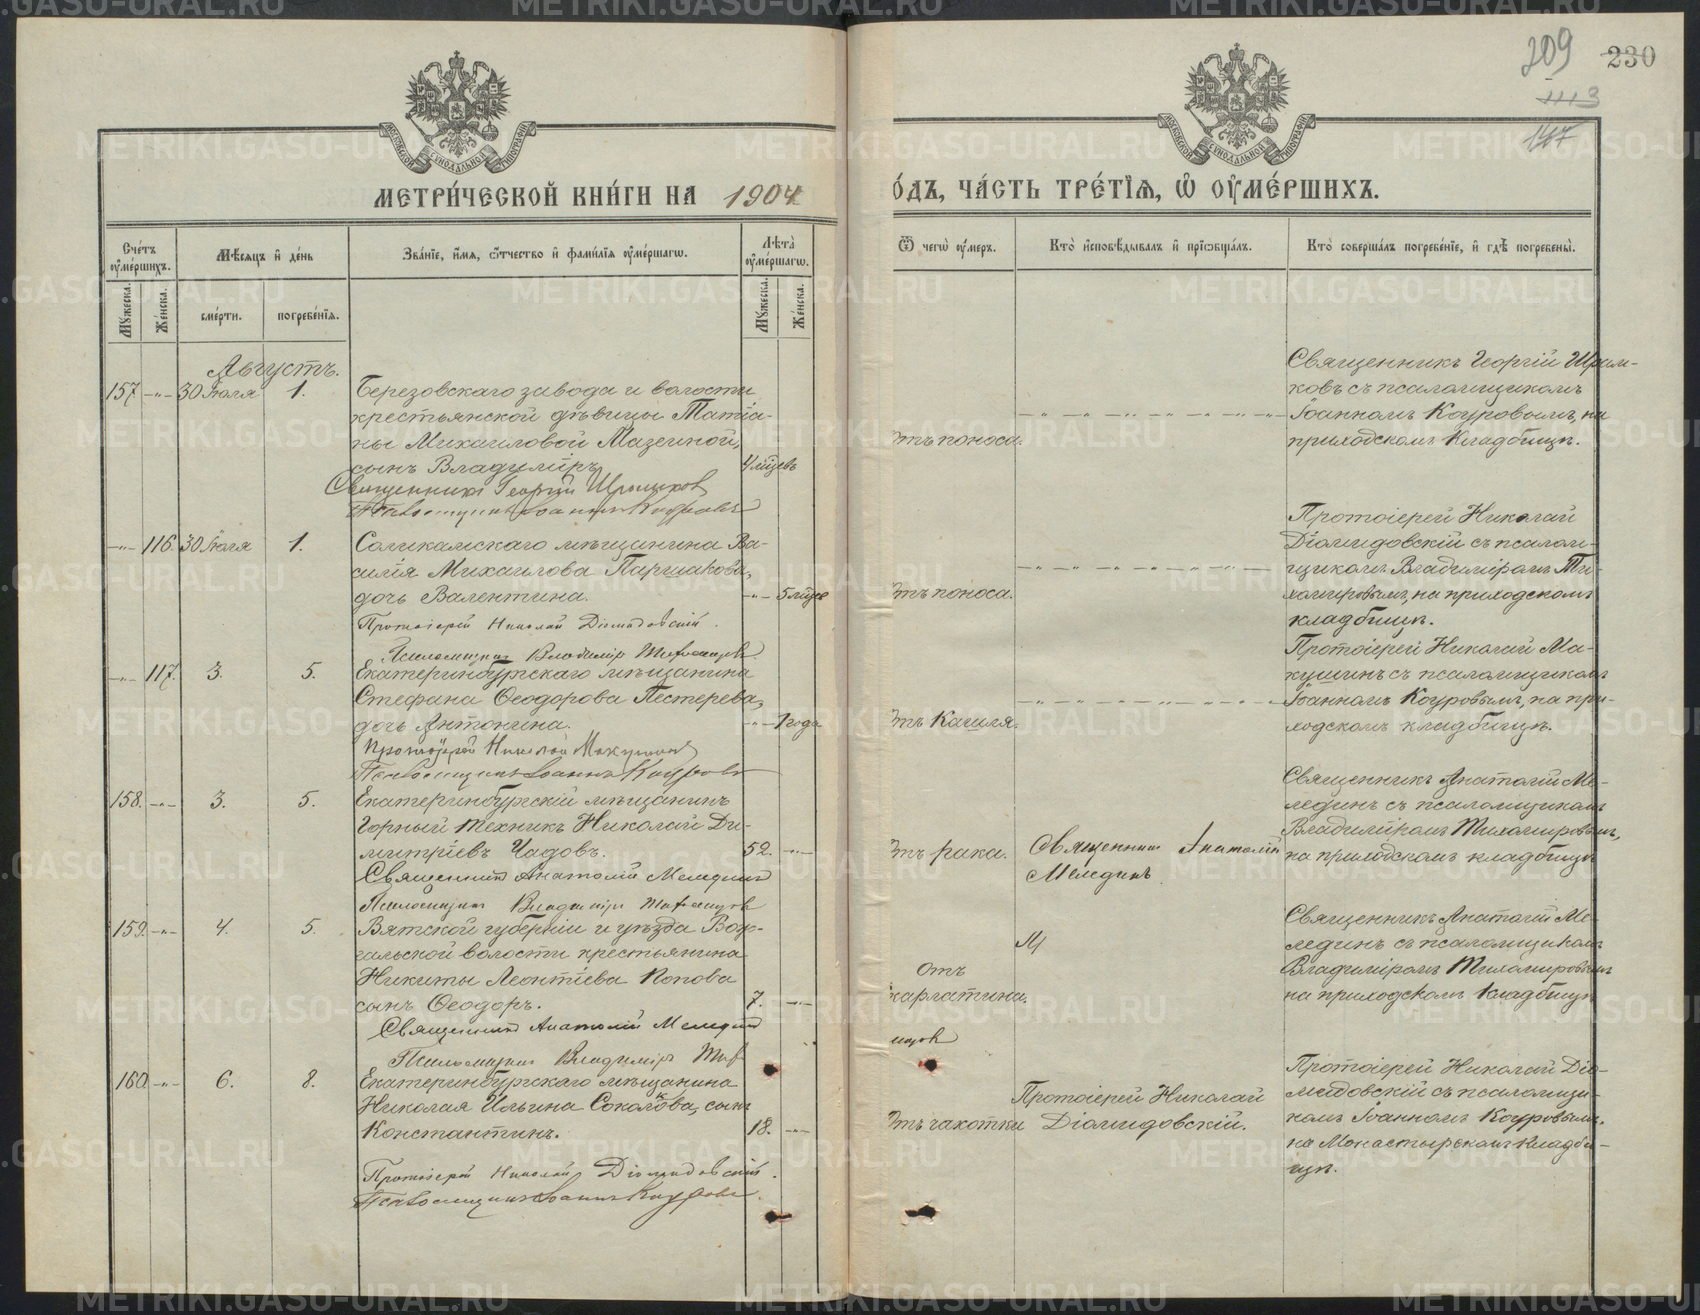 209
230
1113
147
МОСКОВСКОЙ СѴНОДАЛЬНОЙ ТИПОГРАФІИ
МОСКОВСКОЙ СѴНОДАЛЬНОЙ ТИПОГРАФІИ
МЕТРИ́ЧЕСКОЙ КНИ́ГИ НА 1904
О́ДЪ, ЧА́СТЬ ТРЕ́ТІѦ, Ѡ ОУ҆МЕ́РШИХЪ.
Сче́тъ оу҆ме́ршихъ.
Мѣ́сѧцъ и҆ де́нь
Зва́нїе, и҆́мѧ, ѻ҆́тчество и҆ фами́лїѧ оу҆ме́ршагѡ.
Лѣ̑та оу҆ме́ршагѡ.
Ѿ чегѡ̀ оу҆́меръ.
Кто̀ и҆сповѣ́дывалъ и҆ прїѡбща́лъ.
Кто̀ соверша́лъ погребе́нїе, и҆ гдѣ̀ погребены̀.
Мꙋ́жеска.
Же́нска.
сме́рти.
погребе́нїѧ.
Мꙋ́жеска.
Же́нска.
Августъ.
157 -"- 30 Іюля 1.
Березовскаго завода и волости
крестьянской дѣвицы Татіа-
ны Михаиловой Мазеиной,
сынъ Владиміръ.
4 мѣсяцевъ
Священникъ Георгій
Псаломщикъ Іоаннъ Коуровъ
отъ поноса.
Священникъ Георгій
ковъ съ псаломщикомъ
Іоанномъ Коуровымъ, на
приходскомъ кладбищѣ.
-"- 116 30 Іюля 1.
Соликамскаго мѣщанина Ва-
силія Михаилова Паршакова,
дочь Валентина.
-"- 5 мѣсяц
Протоіерей Николай Діомидовскій.
Псаломщикъ Владиміръ Тихомировъ
отъ поноса.
Протоіерей Николай
Діомидовскій съ псалом-
щикомъ Владиміромъ Ти-
хомировымъ, на приходскомъ
кладбищѣ.
-"- 117. 3. 5.
Екатеринбургскаго мѣщанина
Стефана Ѳеодорова Пестерева,
дочь Антонина.
-"- 1 года
Протоіерей Николай Макушинъ
Псаломщикъ Іоаннъ Коуровъ
отъ кашля.
Протоіерей Николай Ма-
кушинъ съ псаломщикомъ
Іоанномъ Коуровымъ, на при-
ходскомъ кладбищѣ.
158. -"- 3. 5.
Екатеринбургскій мѣщанинъ
Горный техникъ Николай Ди-
митріевъ Чадовъ.
52. -"-
Священникъ Анатолій Мелединъ
Псаломщикъ Владиміръ Тихомировъ
отъ рака.
Священникъ Анатолій
Мелединъ
Священникъ Анатолій Ме-
лединъ съ псаломщикомъ
Владиміромъ Тихомировымъ,
на приходскомъ кладбищѣ
159. -"- 4. 5.
Вятской губерніи и уѣзда Вож-
гальской волости крестьянина
Никиты Леонтіева Попова
сынъ Ѳеодоръ.
7. -"-
Священникъ Анатолій Меледин
Псаломщикъ Владиміръ Тих
отъ
скарлатины.
мировъ
М
Священникъ Анатолій Ме-
лединъ съ псаломщикомъ
Владиміромъ Тихомировымъ
на приходскомъ кладбищѣ
160. -"- 6. 8.
Екатеринбургскаго мѣщанина
Николая Ильина Соколова, сынъ
Константинъ.
18. -"-
Протоіерей Николай Діомидовскій.
Псаломщикъ Іоаннъ Коуровъ.
отъ чахотки
Протоіерей Николай
Діомидовскій.
Протоіерей Николай Діо-
мидовскій съ псаломщи-
комъ Іоанномъ Коуровымъ,
на Монастырскомъ кладби-
щѣ.
METRIKI.GASO-URAL.RU